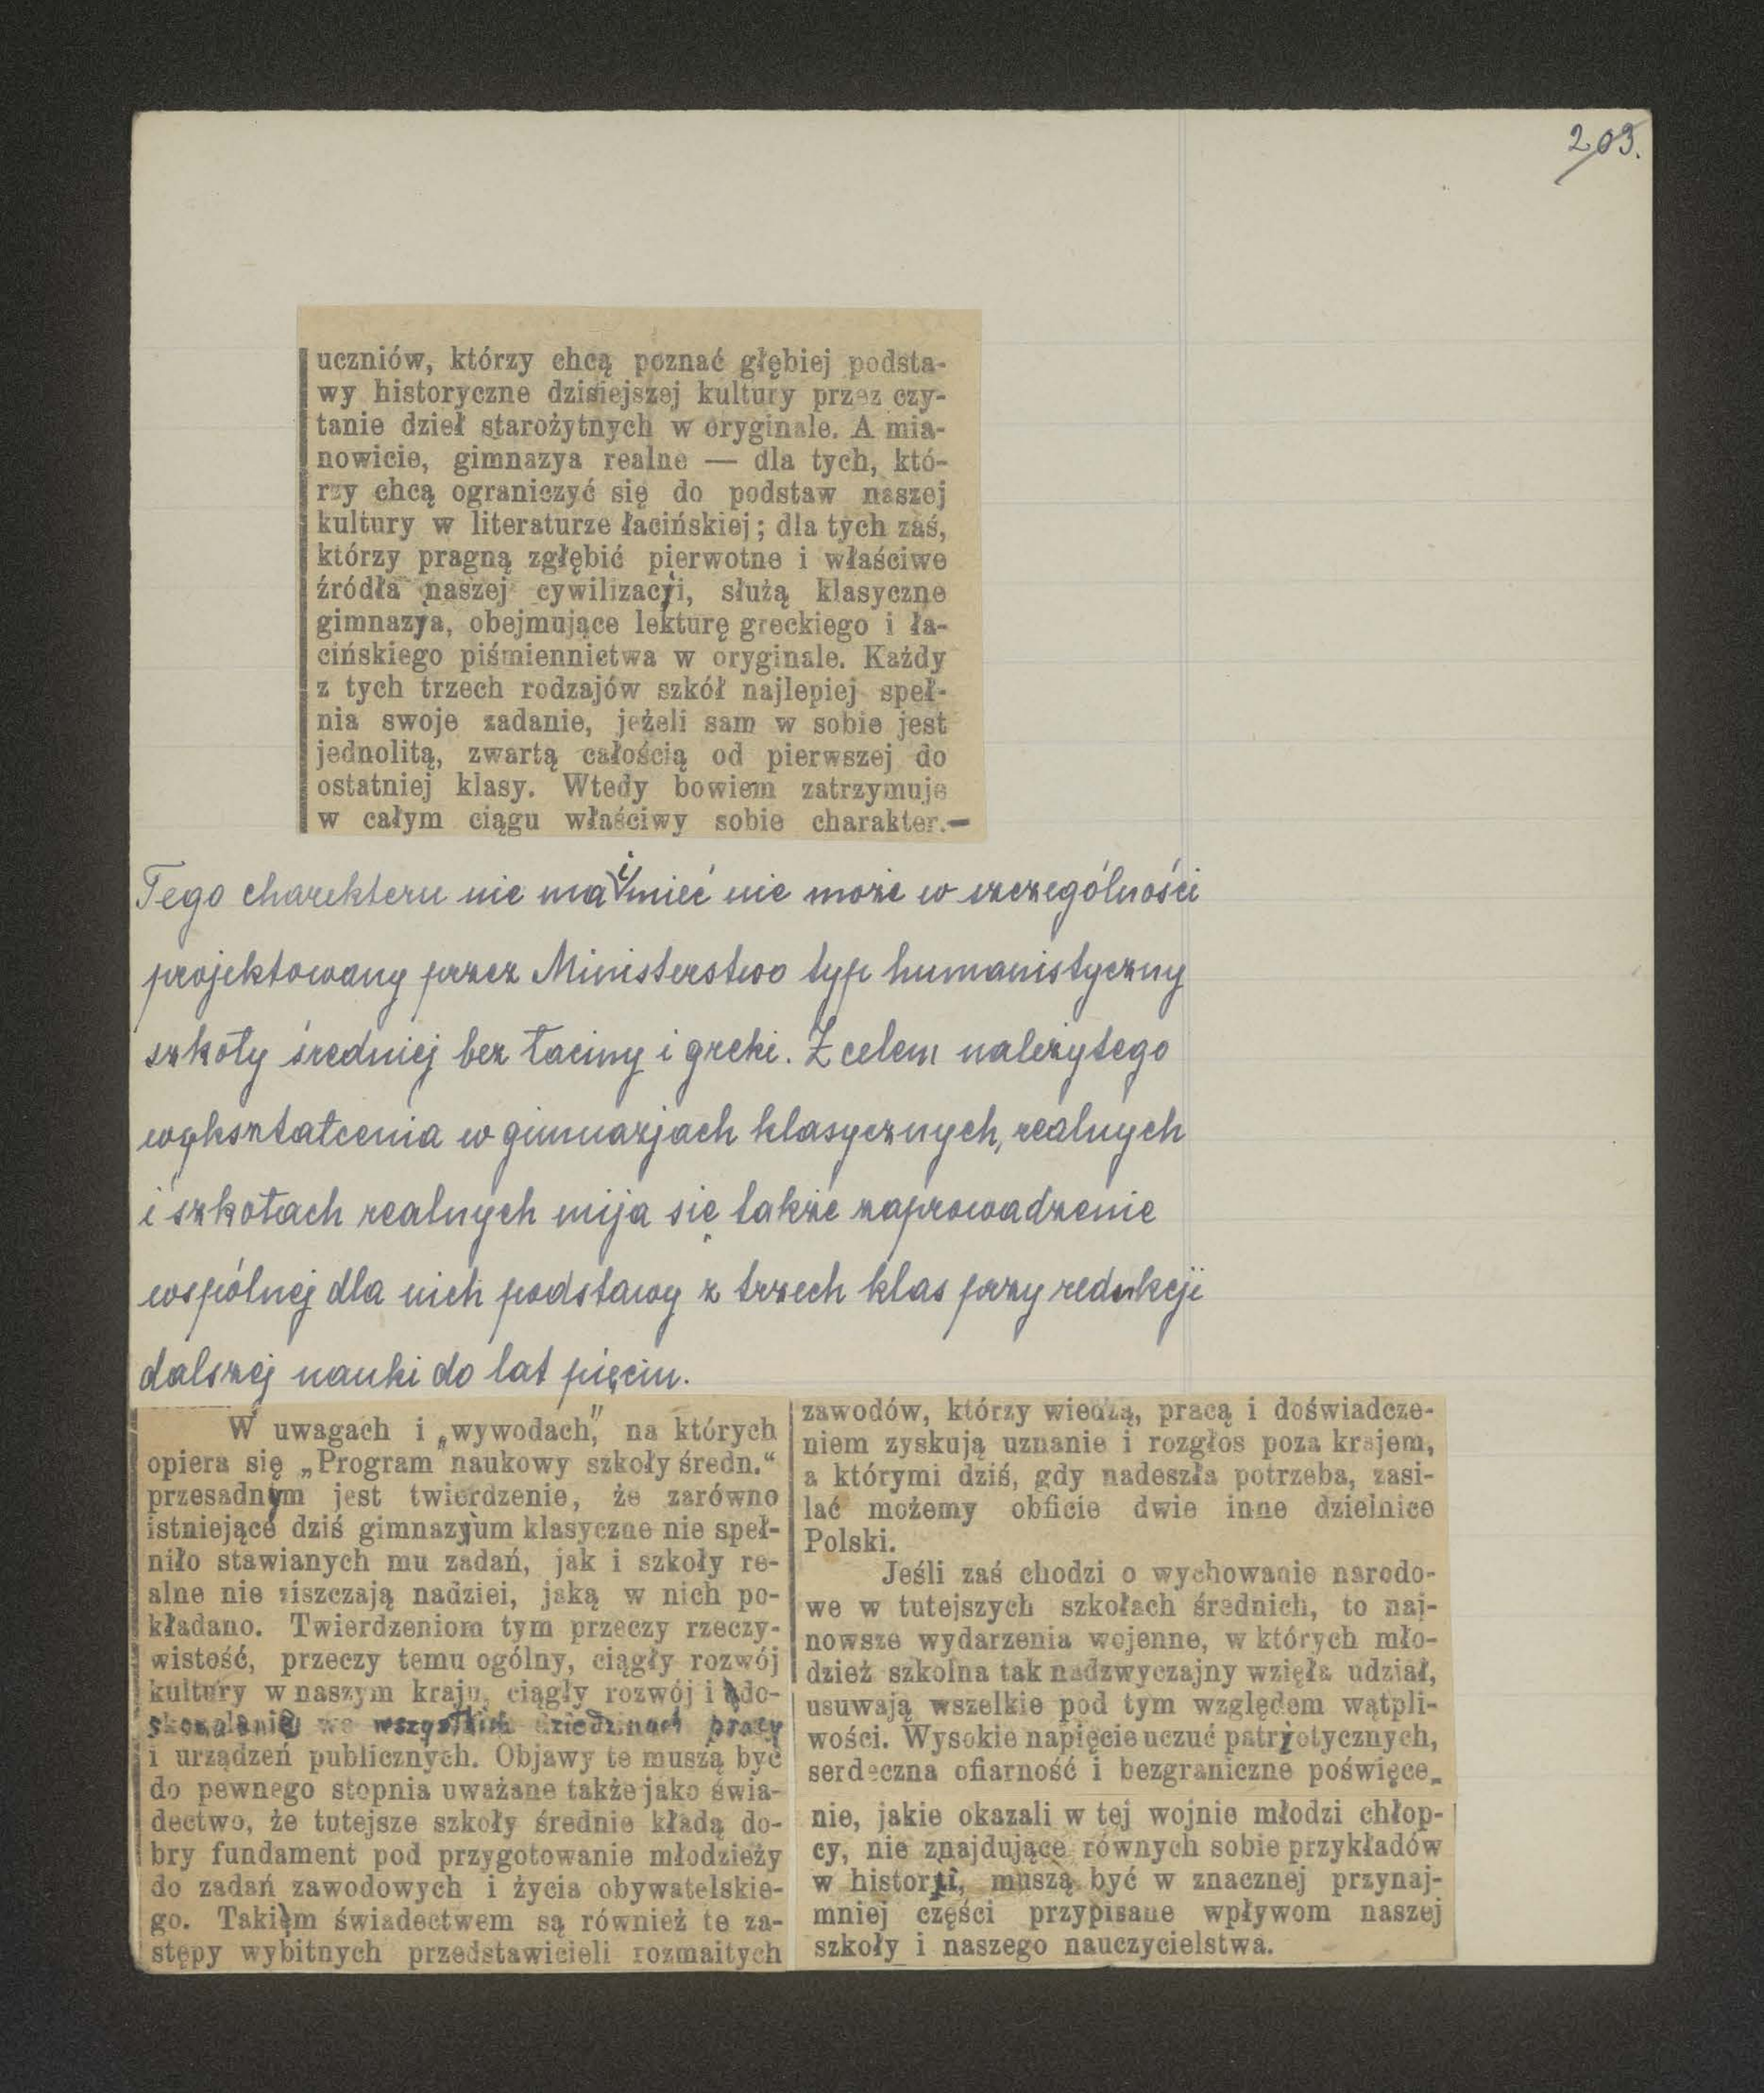 203.
uczniów, którzy chcą poznać głębiej podsta-
wy historyczne dzisiejszej kultury przez czy-
tanie dzieł starożytnych w oryginale. A mia-
nowicie, gimnazya realne — dla tych, któ-
rzy chcą ograniczyć się do podstaw naszej
kultury w literaturze łacińskiej; dla tych zaś,
którzy pragną zgłębić pierwotne i właściwe
źródła naszej cywilizacji, służą klasyczne
gimnazya, obejmujące lekturę greckiego i ła-
cińskiego piśmiennictwa w oryginale. Każdy
z tych trzech rodzajów szkół najlepiej speł-
nia swoje zadanie, jeżeli sam w sobie jest
jednolitą, zwartą całością od pierwszej do
ostatniej klasy. Wtedy bowiem zatrzymuje
w całym ciągu właściwy sobie charakter.—
Tego charakteru nie ma i mieć nie może w szczególności
projektowany przez Ministerstwo typ humanistyczny
szkoły średniej bez łaciny i greki. Z celem należytego
wykształcenia w gimnazjach klasycznych, realnych
i szkołach realnych mija się także zaprowadzenie
wspólnej dla nich podstawy z trzech klas przy redukcji
dalszej nauki do lat pięciu.
W uwagach i „wywodach", na których
opiera się „Program naukowy szkoły średn.“
przesadnym jest twierdzenie, że zarówno
istniejące dziś gimnazjum klasyczne nie speł-
niło stawianych mu zadań, jak i szkoły re-
alne nie ziszczają nadziei, jaką w nich po-
kładano. Twierdzeniom tym przeczy rzeczy-
wistość, przeczy temu ogólny, ciągły rozwój
kultury w naszym kraju, ciągły rozwój i do-
skonalenie we wszystkich dziedzinach pracy
i urządzeń publicznych. Objawy te muszą być
do pewnego stopnia uważane także jako świa-
dectwo, że tutejsze szkoły średnie kładą do-
bry fundament pod przygotowanie młodzieży
do zadań zawodowych i życia obywatelskie-
go. Takim świadectwem są również te za-
stępy wybitnych przedstawicieli rozmaitych
zawodów, którzy wiedzą, pracą i doświadcze-
niem zyskują uznanie i rozgłos poza krajem,
a którymi dziś, gdy nadeszła potrzeba, zasi-
lać możemy obficie dwie inne dzielnice
Polski.
Jeśli zaś chodzi o wychowanie narodo-
we w tutejszych szkołach średnich, to naj-
nowsze wydarzenia wojenne, w których mło-
dzież szkolna tak nadzwyczajny wzięła udział,
usuwają wszelkie pod tym względem wątpli-
wości. Wysokie napięcie uczuć patrjotycznych,
serdeczna ofiarność i bezgraniczne poświęce-
nie, jakie okazali w tej wojnie młodzi chłop-
cy, nie znajdujące równych sobie przykładów
w historji, muszą być w znacznej przynaj-
mniej części przypisane wpływom naszej
szkoły i naszego nauczycielstwa.